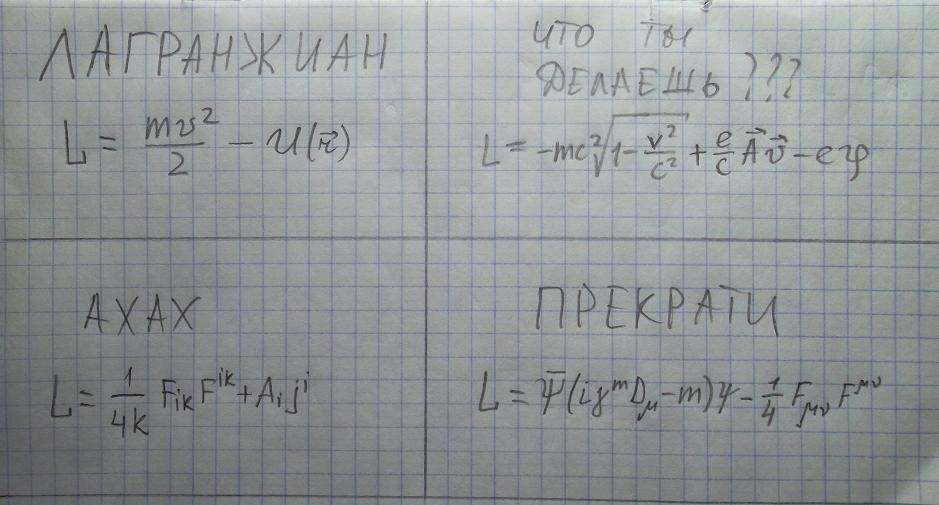 ЛАГРАНЖИАН
L = mv²/2 − U(r⃗)
ЧТО ТЫ
ДЕЛАЕШЬ ???
L = −mc²√(1−v²/c²) + e/c A⃗v⃗ − eφ
АХАХ
L = 1/4k FᵢₖFⁱᵏ + Aᵢjⁱ
ПРЕКРАТИ
L = Ψ̄(iγᵐD_μ−m)ψ − 1/4 F_μν F^μν